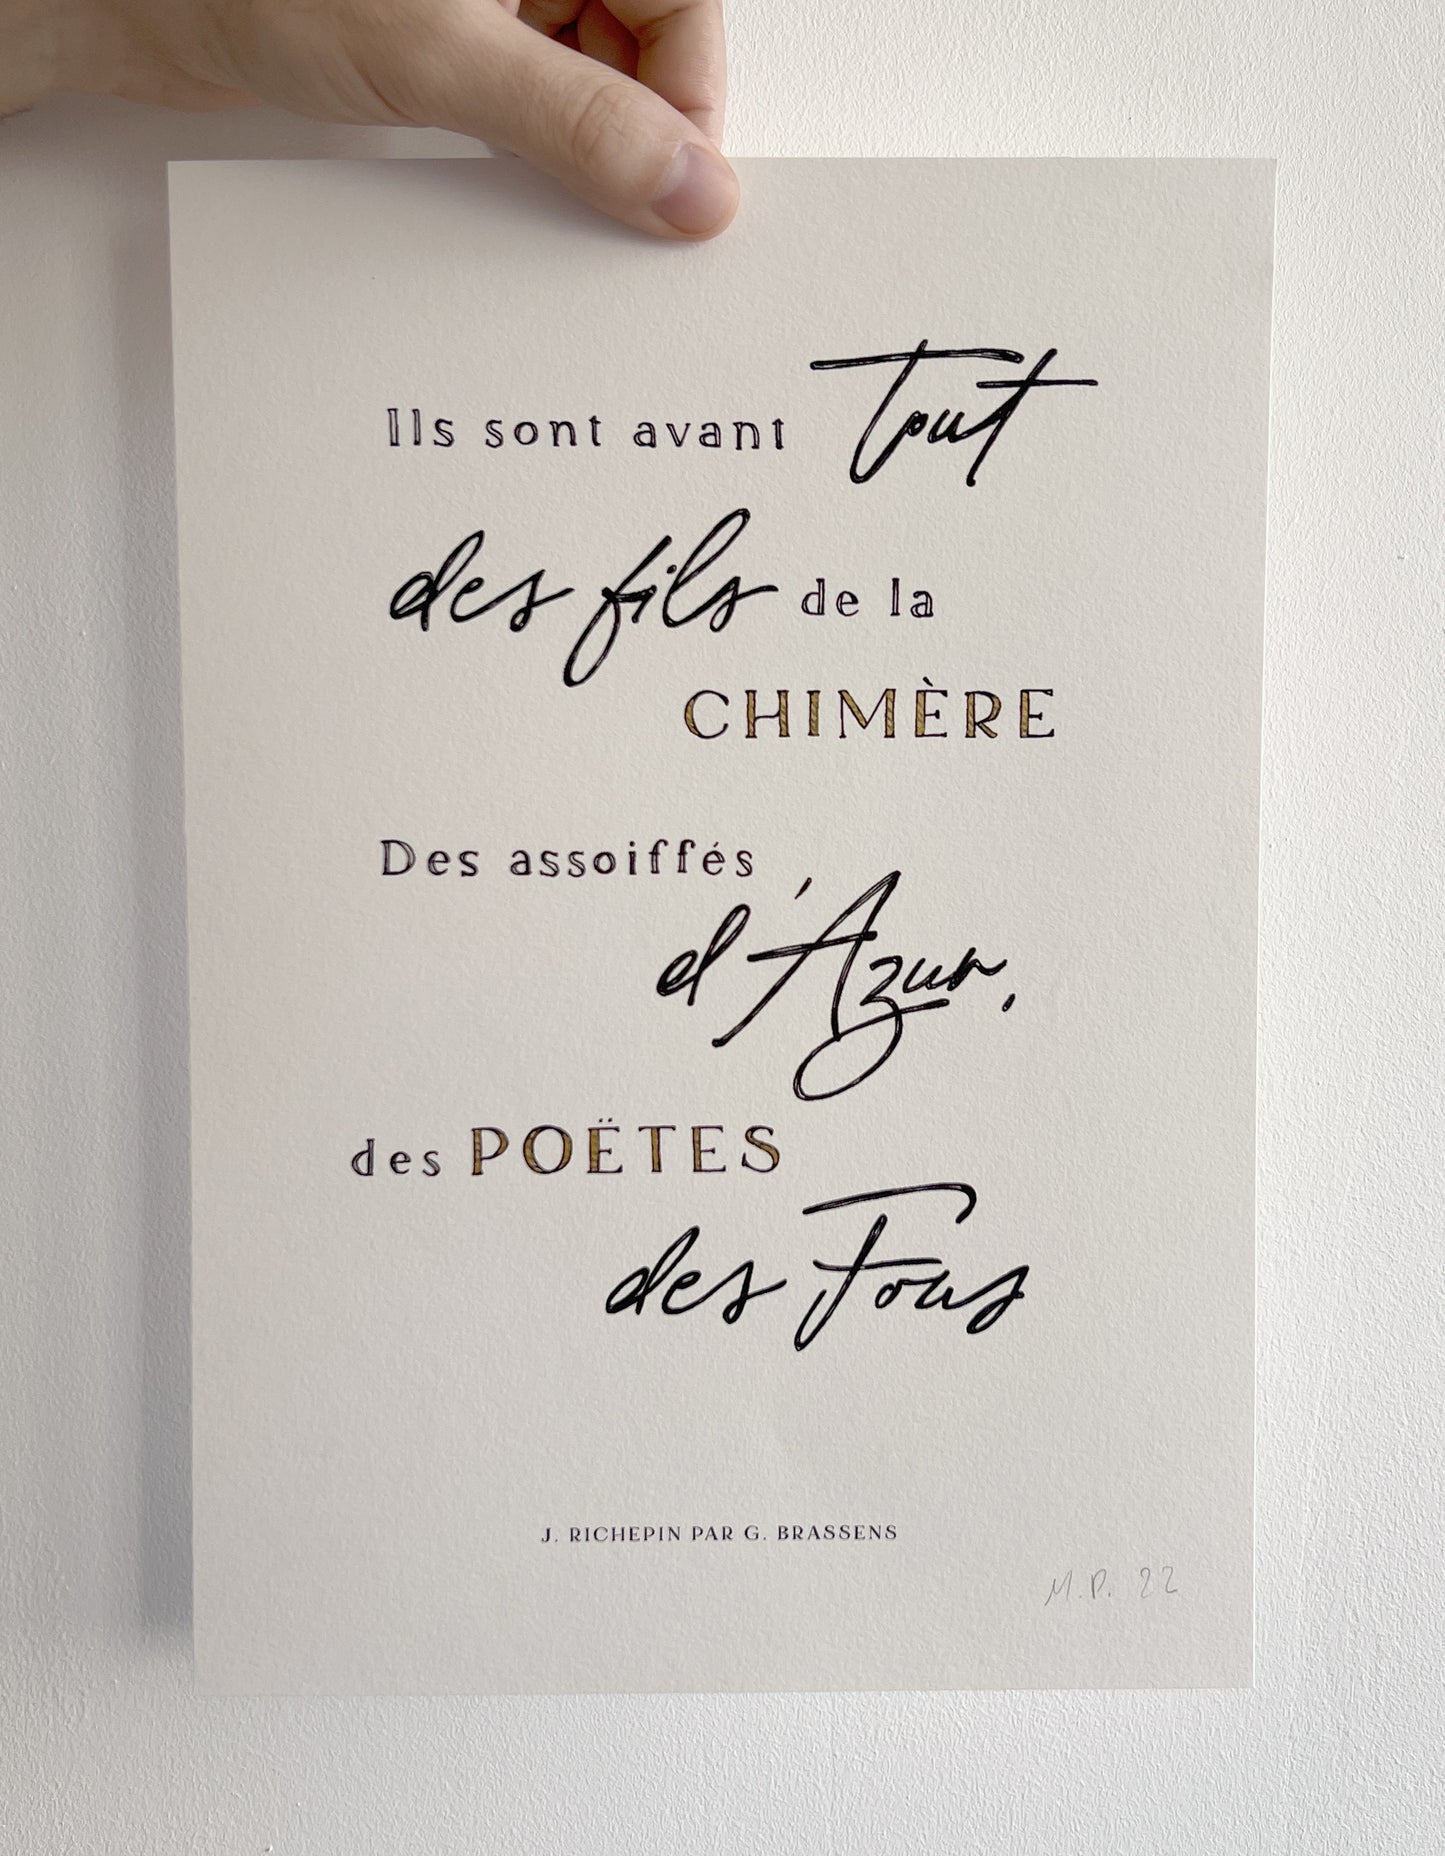 Ils sont avant Tout
des fils de la
CHIMÈRE
Des assoiffés
d'Azur,
des POËTES
des Fous
J. RICHEPIN PAR G. BRASSENS
M.P. 22